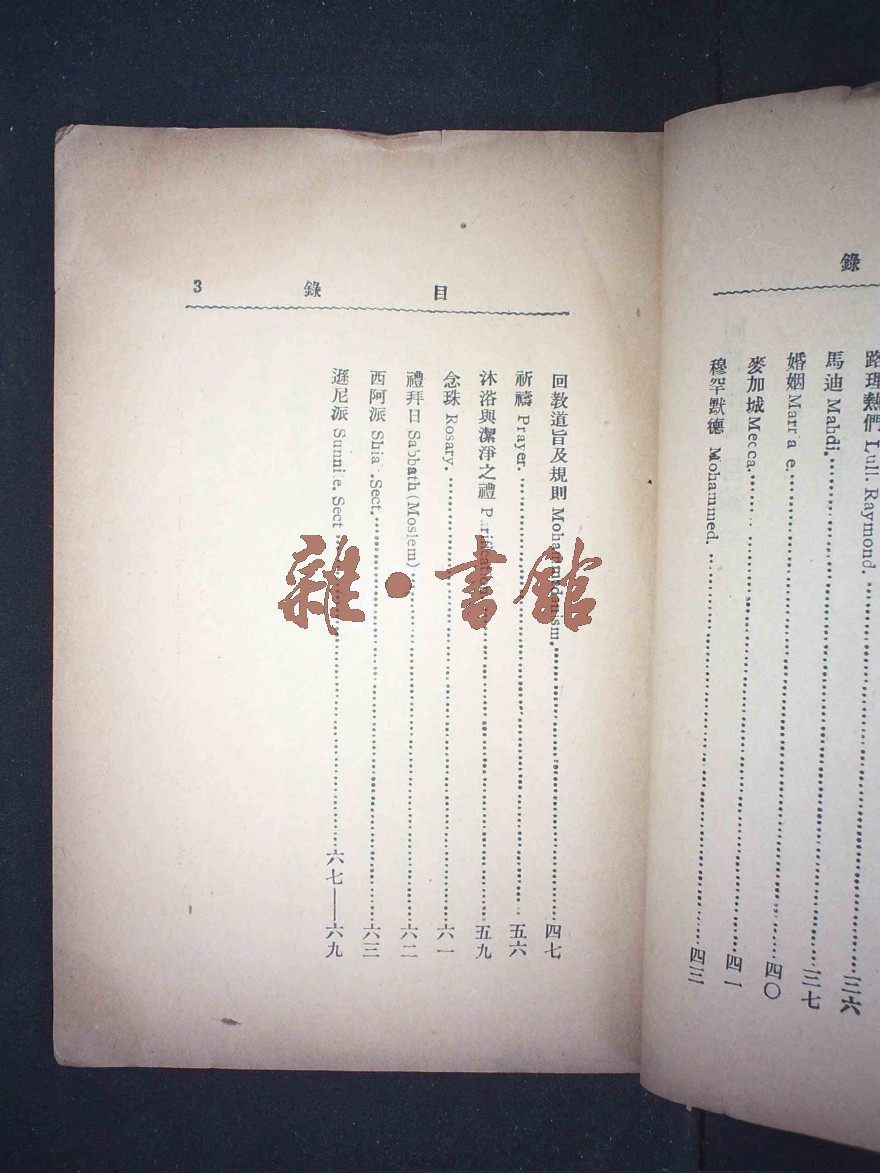 錄
路理熱們 Lull. Raymond. 三六
馬迪 Mahdi. 三七
婚姻 Marr a e. 四〇
麥加城 Mecca. 四一
穆罕默德 Mohammed. 四三
目 錄 3
回教道旨及規則 Mohammedanism. 四七
祈禱 Prayer. 五六
沐浴與潔淨之禮 P rification. 五九
念珠 Rosary. 六一
禮拜日 Sabbath (Moslem) 六二
西阿派 Shia . Sect. 六三
遜尼派 Sunni e. Sect 六七——六九
雜·書館